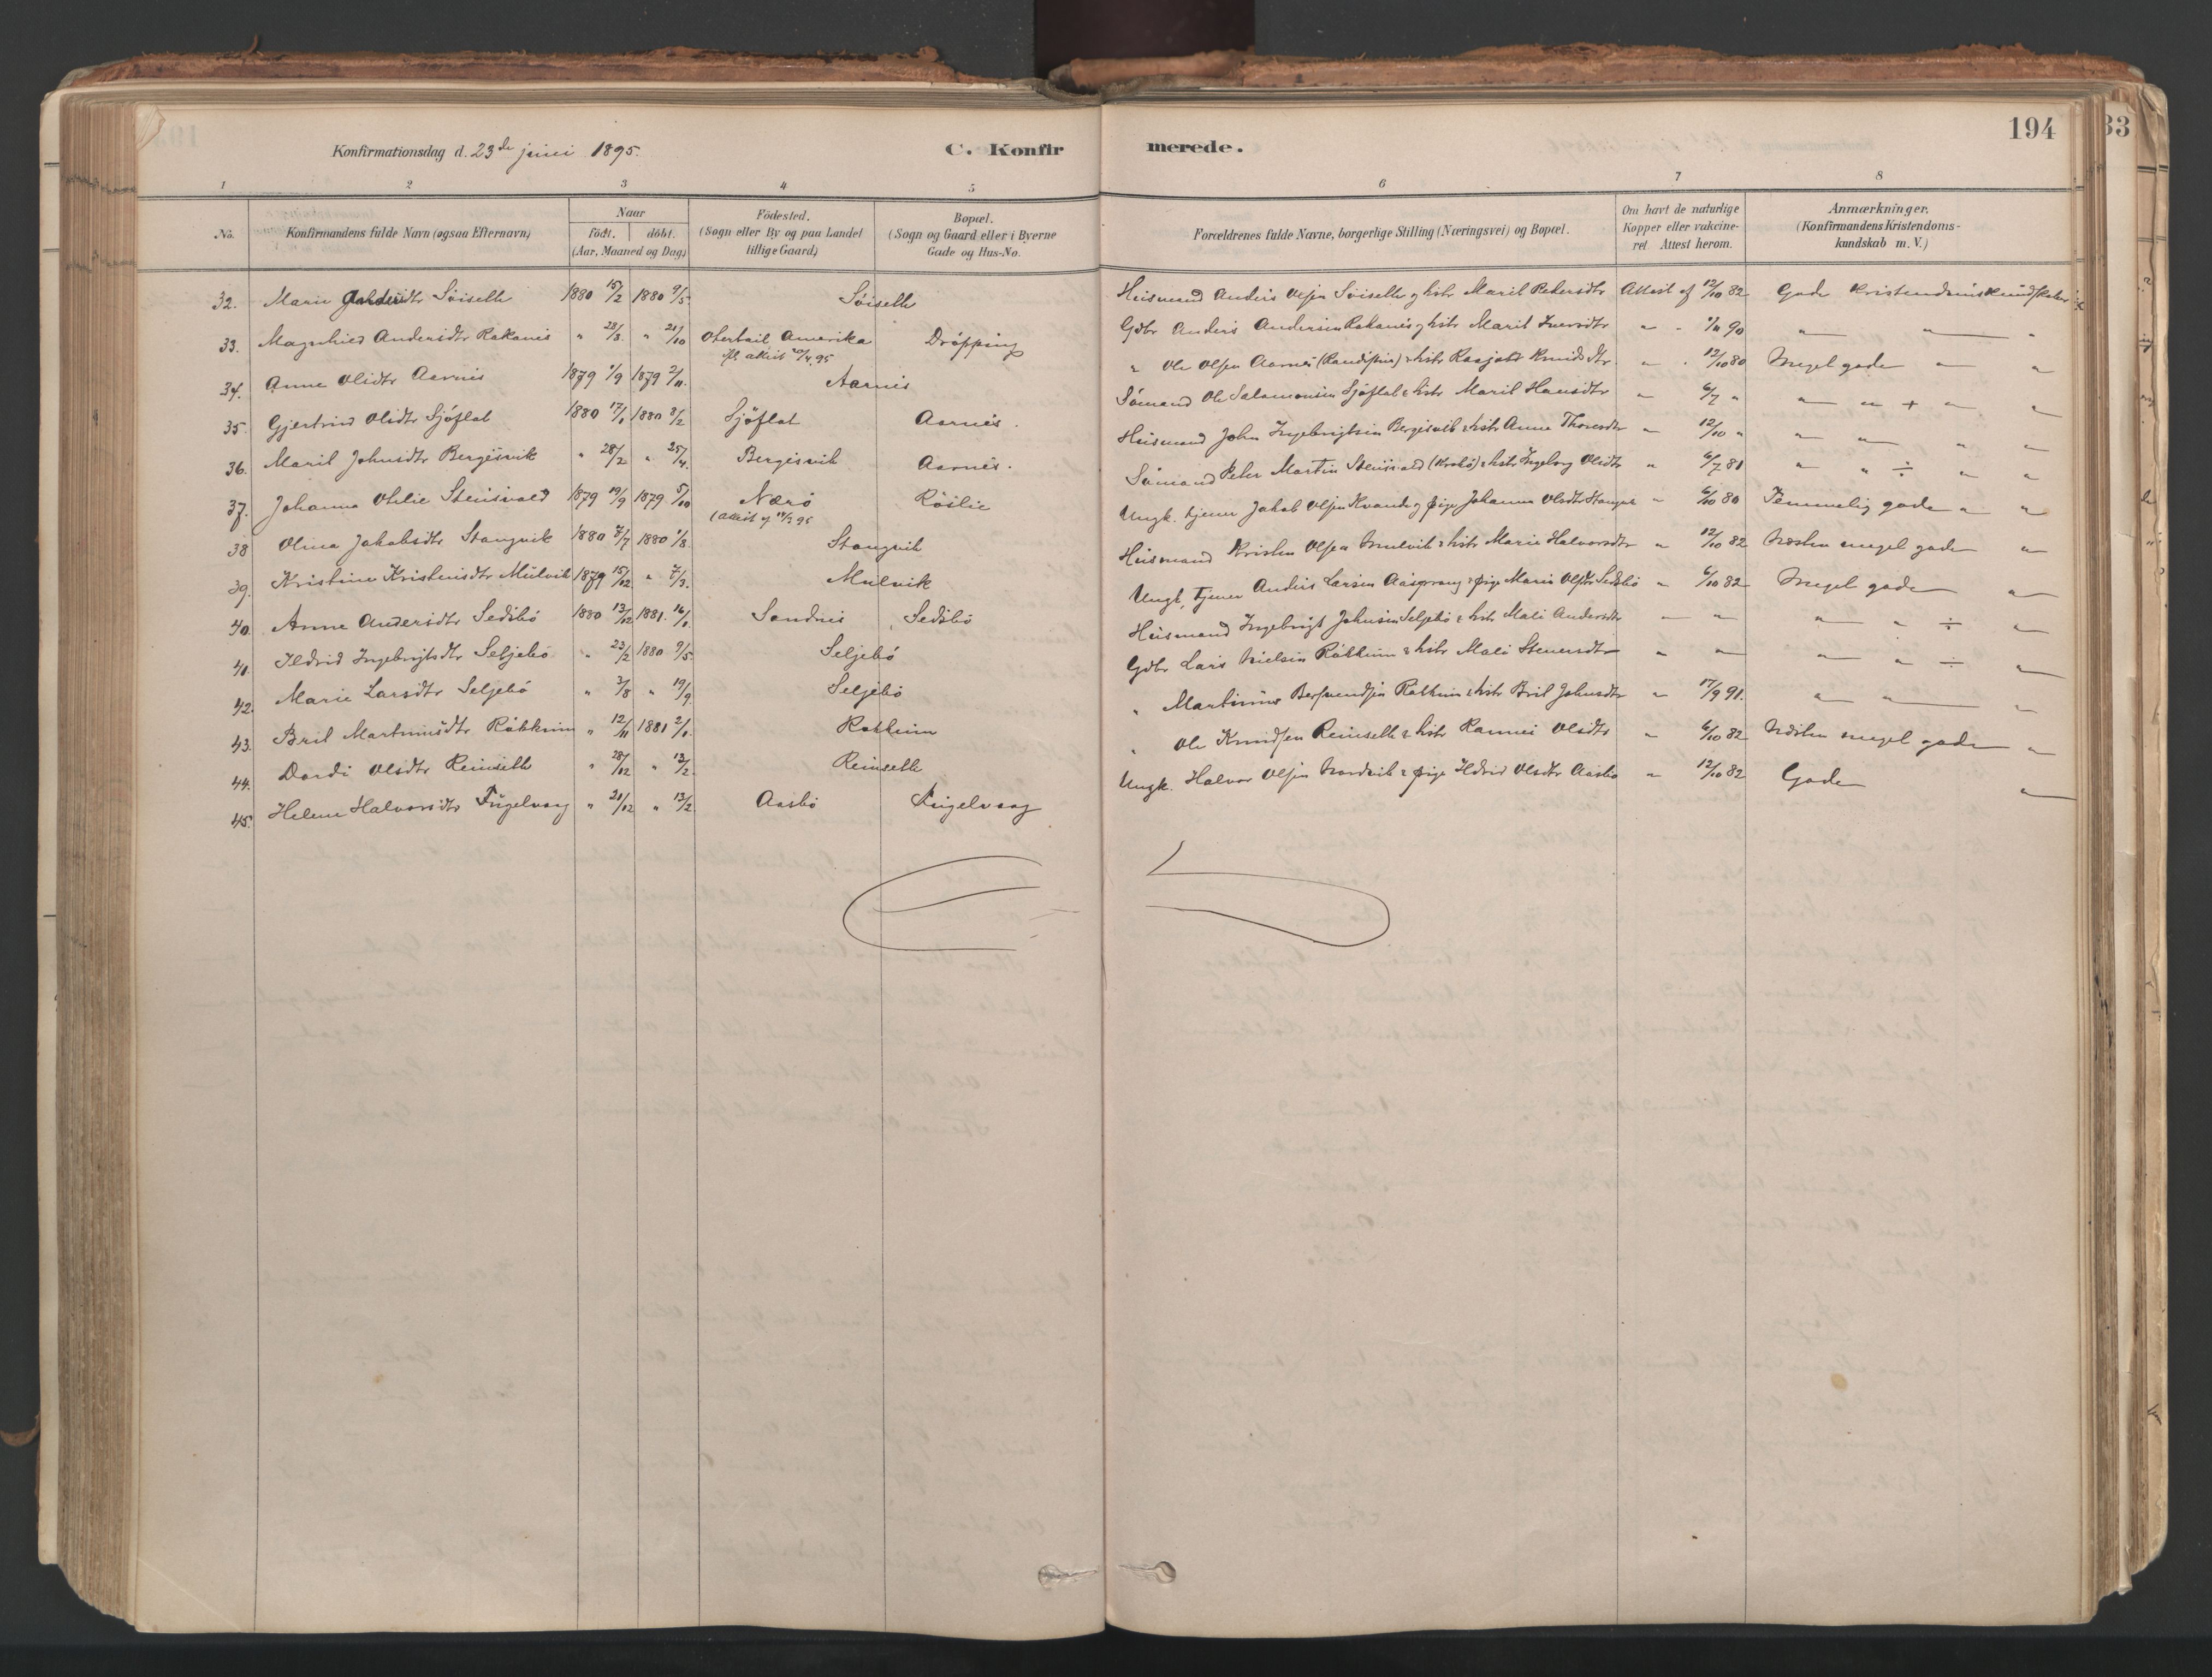 194
33
Konfirmationsdag d. 23de juni 1895.
C. Konfirmerede.
1 2 3 4 5 6 7 8
No.
Konfirmandens fulde Navn (ogsaa Efternavn)
Naar
födt. döbt.
(Aar, Maaned og Dag)
Födested.
(Sogn eller By og paa Landet
tillige Gaard)
Bopæl.
(Sogn og Gaard eller i Byerne
Gade og Hus-No.
Forældrenes fulde Navne, borgerlige Stilling (Næringsvei) og Bopæl.
Om havt de naturlige
Kopper eller vakcine-
ret. Attest herom.
Anmærkninger.
(Konfirmandens Kristendoms-
kundskab m. V.)
32. Marie Andersdtr Söiseth 1880 15/2 1880 9/5 Söiseth Husmand Anders Olsen Söiseth og hstr Marit Pedersdtr Attest af 12/10 82 Gode Kristendomskundskaber
33. Magnhild Andersdtr Rakanes " 28/3 " 21/10 Otertail Amerika Dröpping Gbr Anders Andersen Rakanes og hstr Marit Iversdtr " " 90 " " "
34. Anne Olsdtr Aarnes 1879 1/9 1879 2/11 Aarnes " Ole Olsen Aarnes & hstr Knudsdtr " 12/10 80 Meget gode " "
35. Gjertrud Olsdtr Sjöflot 1880 17/1 1880 8/2 Sjöflot Aarnes. Sömand Ole Salamonsen Sjöflot & hstr Marit Hansdtr " 6/7 " " " + " "
36. Marit Johnsdtr Bergesvik " 28/2 " 25/4 Bergesvik Aarnes. Husmand John Ingebrigtsen Bergesvik & hstr Anne Thoresdtr " 12/10 " " " " "
37. Johanna Otelie Stensvold 1879 19/9 1879 5/10 Nærö Röslie Sömand Peter Martin Stensvold & hstr Ingeborg Olsdtr " 6/7 81 " " ÷ " "
38 Olina Jakobsdtr Stangvik 1880 7/7 1880 1/8 Stangvik Ungk. tjener Jakob Olsen Kvande og pige Johanna Olsdtr Stangvik " 6/10 80 Temmelig gode " "
39. Kristine Kristensdtr Mulvik 1879 15/12 " 7/3 Mulvik Husmand Kristen Olsen Mulvik & hstr Marie Halvorsdtr " 12/10 82 Næsten meget gode "
40. Anne Andersdtr Sedsbö 1880 13/12 1881. 16/1 Sandnes Sedsbö Ungk. tjener Anders Larsen Aasprong & pige Marie Olsdtr Sedsbö " 6/10 82 Meget gode "
41. Ildrid Ingebrigtsdtr Seljebö " 23/2 1880 9/5 Seljebö Husmand Ingebrigt Johnsen Seljebö & hstr Mali Andersdtr " " " " ÷ "
42. Marie Larsdtr Seljebö " 3/8 " 19/9 Seljebö Gbr Lars Nielsen Röthum & hstr Mali Steversdtr " " " " ÷ "
43. Brit Martinusdtr Röthum " 12/11 1881 2/1 Rökkum " Martinus Bersvendsen Rökkum & hstr Brit Johnsdtr " 17/9 91. " " "
44. Dordi Olsdtr Reinseth " 28/12 " 13/2 Reinseth " Ole Knudsen Reinseth & hstr Rannei Olsdtr " 6/10 82 Næsten meget gode "
45. Helene Halvorsdtr Fugelvaag " 21/12 " 13/2 Aasbö Fugelvaag Ungk. Halvor Olsen Nordvik & pige Ildrid Olsdtr Aasbö " 12/10 82 Gode "